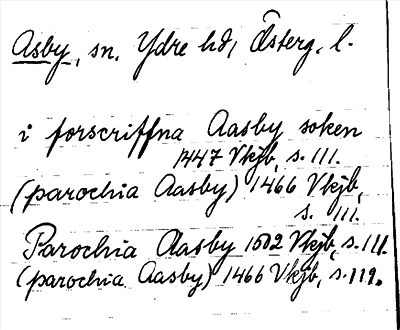 Asby, sn. Ydre hd, Österg. l.
i forscriffna Aasby soken
1447 Vkjb, s. 111.
(parochia Aasby) 1466 Vkjb,
s. 111.
Parochia Aasby 1502 Vkjb, s. 111.
(parochia Aasby) 1466 Vkjb, s. 119.